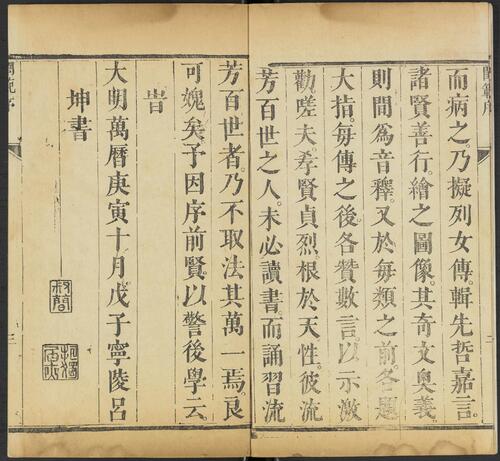 閨範序
而病之。乃擬列女傳。輯先哲嘉言。
諸賢善行。繪之圖像。其奇文奧義。
則間爲音釋。又於每類之前。各題
大指。每傳之後。各贊數言。以示激
勸。嗟夫。孝賢貞烈。根於天性。彼流
芳百世之人。未必讀書。而誦習流
芳百世者。乃不取法其萬一焉。良
可媿矣。予因序前賢。以警後學云。
旹
大明萬曆庚寅十月戊子寧陵呂
坤書
叔簡
三